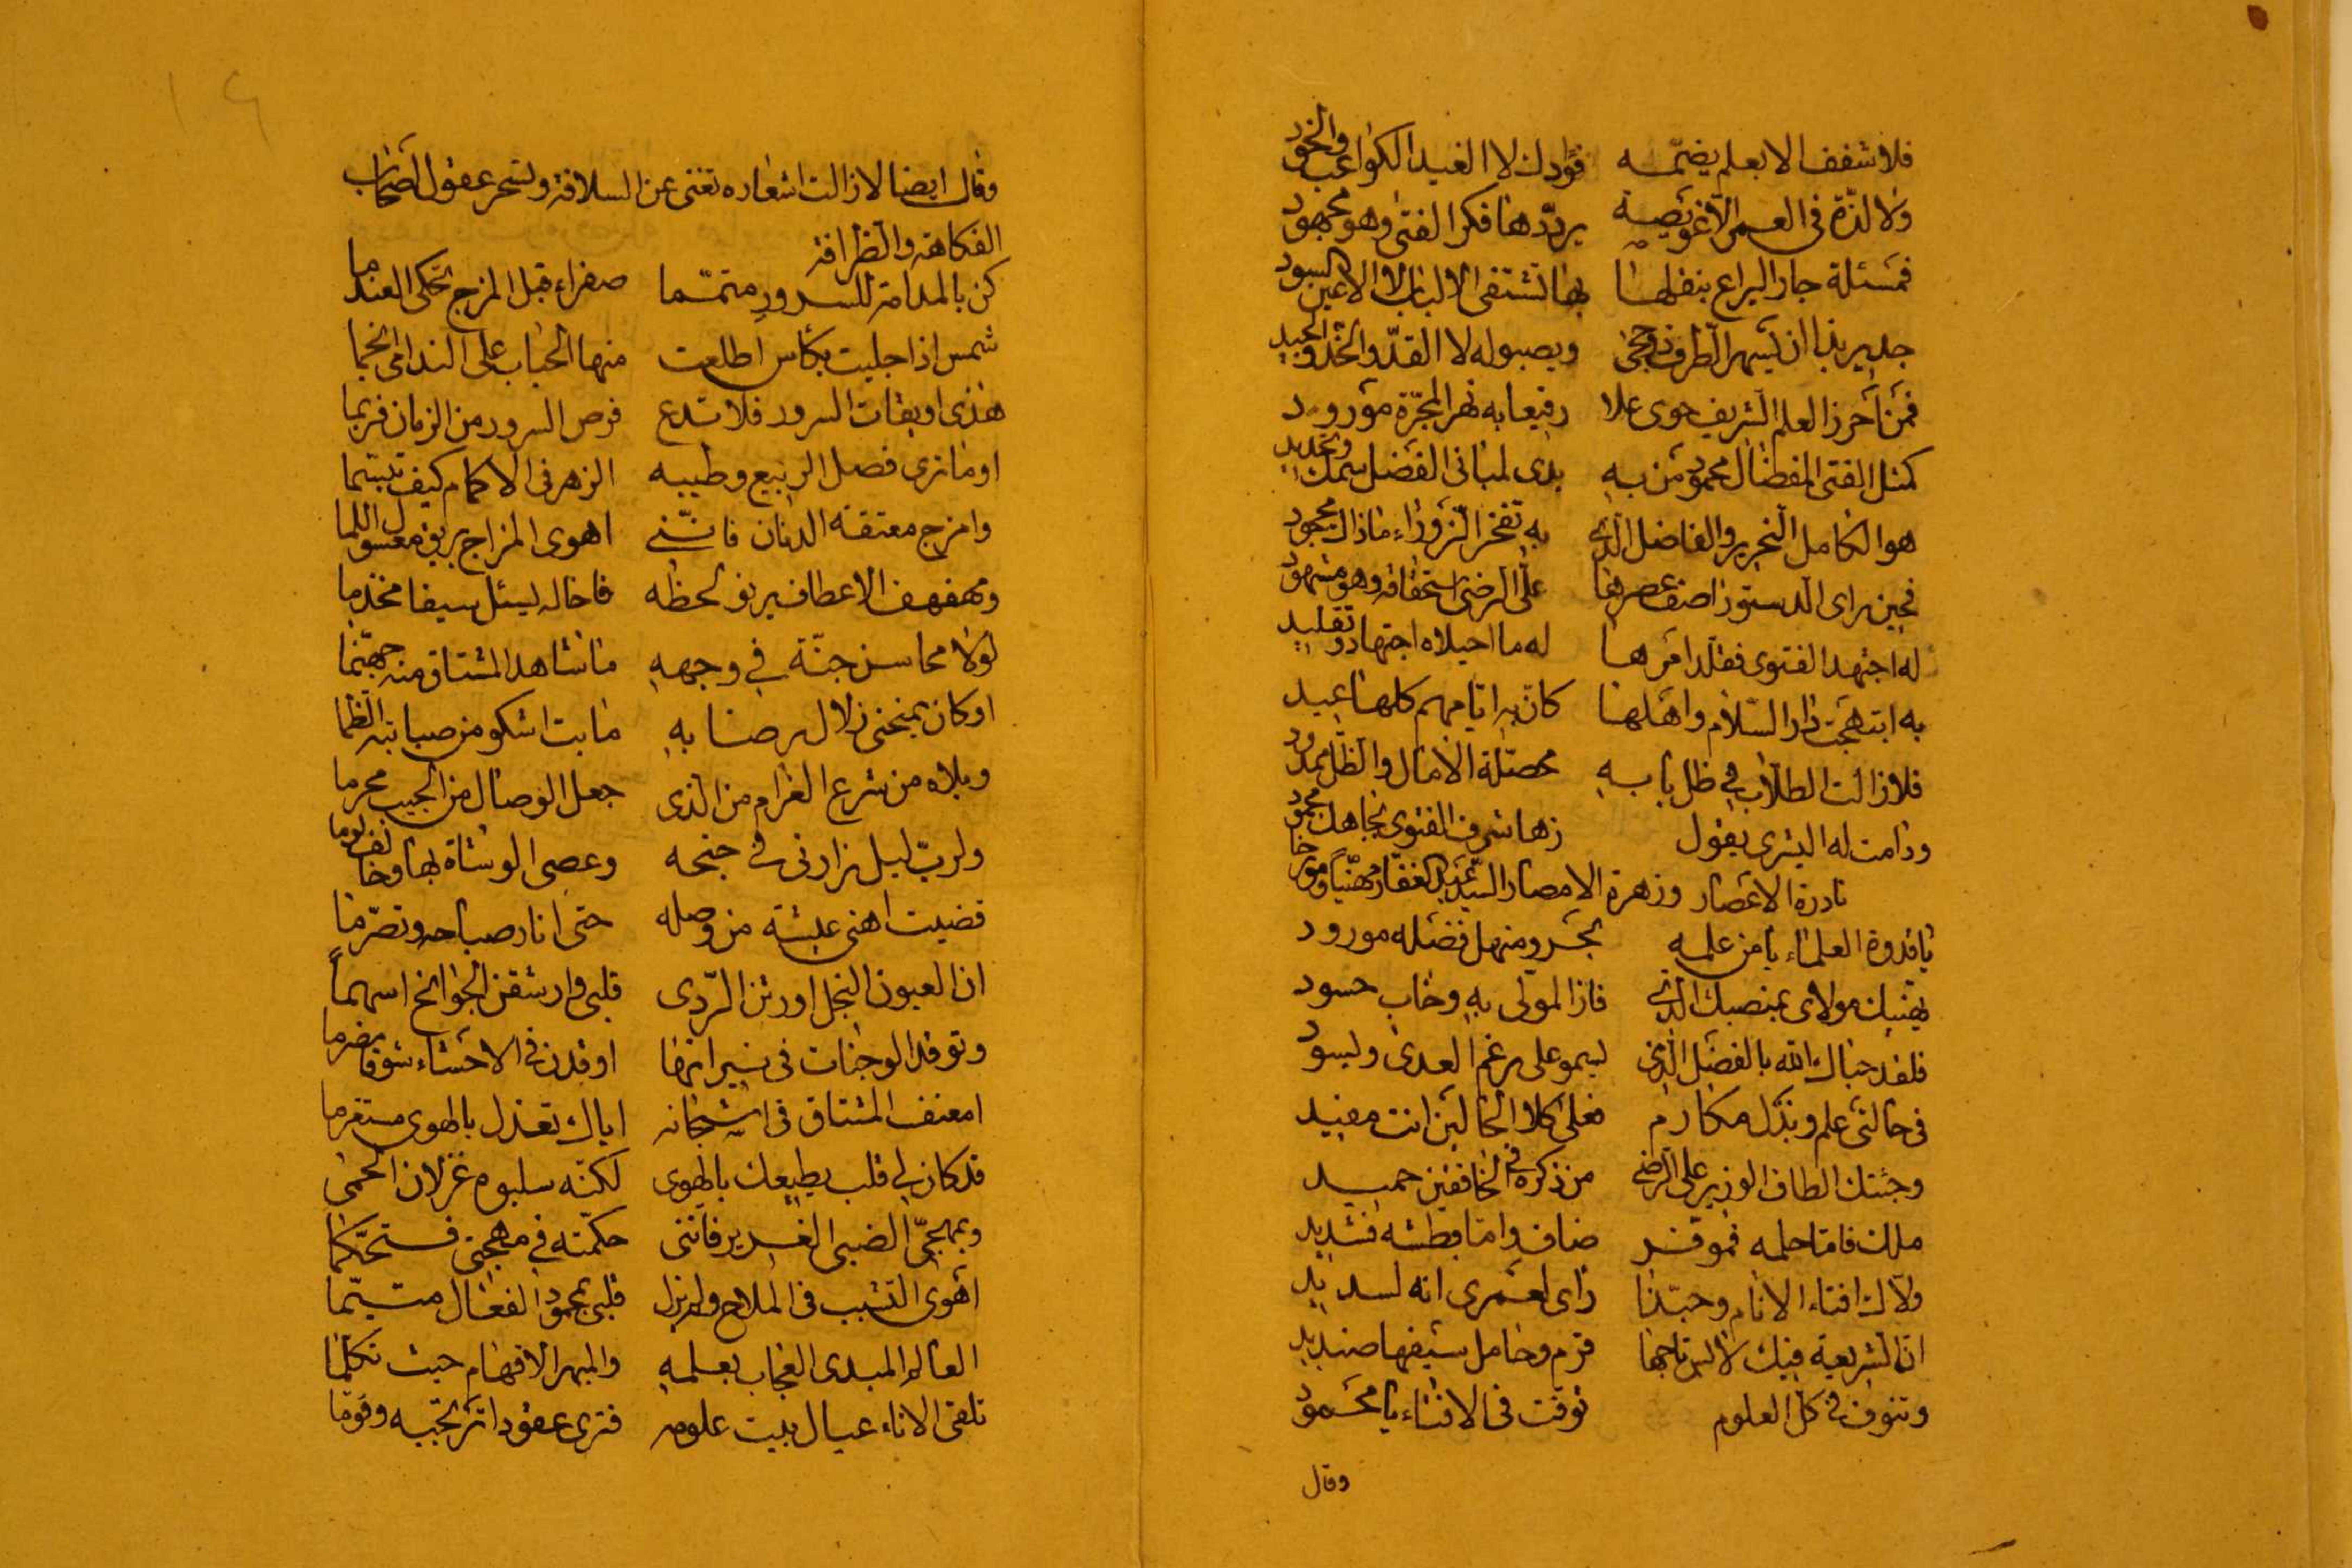 فلا شغف الا بعلم يضمّه فؤادك لا الغيد الكواعب والخود
ولا لذّة في العمر الّا غويصة يردّدها فكر الفتى وهو مجهود
فمسئلة جاد اليراع بنقلها بها تشتفى الالباب لا الاعين السود
جدير بذا ان يسهر الطرف ذو حجى ويصبو له لا القدّ والخدّ والجيد
فمن احرز العلم الشريف حوى علا رفيعا به نهر المجرّة مورود
كمثل الفتى المفضال محمود من به بدى لمبانى الفضل سمك وتحديد
هو الكامل النحرير والفاضل الذي به تفخر الزوراء ما ذاك مجحود
فحين راى الدستور اصف عصرها على الرضى استحقاقه وهو مشهود
له اجتهد الفتوى فقلد امرها له ما احيلاه اجتهاد وتقليد
به ابتهجت دار السّلام واهلها كانّ به ايّامهم كلها عيد
فلا زالت الطلّاب في ظل بابه محصّلة الامال والظل ممدود
ودامت له البشرى بقول زها شرف الفتوى بجاهك محمود
نادرة الاعصار وزهرة الامصار السيّد عبد الغفار مهنّياً ومورخا
يا قدوة العلماء يا من علمه بحر ومنهل فضله مورود
يهنيك مولاى بمنصبك الذي فاز المولى به وخاب حسود
فلقد حباك الله بالفضل الذي ليسمو على رغم العدى ويسود
في حالتى علم وبذل مكارم فعلى كلا الحالين انت مفيد
وجئتك الطاف الوزير على الرضى من ذكره في الخافقين حميد
ملك فامّا حلمه فموقر ضاف وامّا بطشه فشديد
ولّاك افتاء الانام وحبّذا راى لعمرى انه لسديد
انّ الشريعة فيك لالبس تاجها قرم وحامل سيفها صنديد
وتنوف في كل العلوم توقت في الافتاء يا محمود
وقال
وقال ايضا لا زالت اشعاره تغنى عن السلافة وتسحر عقول اصحاب
الفكاهة والظرافة
كن بالمدامة للسرور متمّما صفراء قبل المزج تحكى العندما
شمس اذا جليت بكأس اطلعت منها الحباب على الندامى انجما
هذى اويقات السرور فلا تدع فرص السرور من الزمان فربما
او ما ترى فصل الربيع وطيبه الزهر في الاكمام كيف تبسّما
وامزج معتقة الدنان فانّني اهوى المزاج بريق معسول اللما
ومهفهف الاعطاف يرنو لحظه فاخاله ليسئل سيفا مخذما
لولا محاسن جنّة في وجهه ما شاهد المشتاق منه جهنّما
او كان يمنحنى زلال رضابه ما بت اشكو من صبابته الظما
ويلاه من شرع الغرام من الذى جعل الوصال من الحبيب محرما
ولربّ ليل زارنى في جنحه وعصى الوشاة بها وخالف لوما
قضيت اهنى عيشة من وصله حتى انار صباحه وتصرّما
ان العيون النجل اورثن الرّدى قلبى وارشقن الجوانح اسهماً
وتوقد الوجنات في نيرانها اوقدن في الاحشاء شوقا مضرما
امعنف المشتاق في اشجانه اياك تعذل بالهوى مستغرما
قد كان لي قلب يطيعك بالهوى لكنّه سلبوه غزلان الحمى
وبمهجتي الضبى الغرير فاننى حكمته في مهجتي فتحكّما
اهوى التشبب في الملاح ولم يزل قلبى بمحمود الفعال متيّما
العالم المبدى العجاب بعلمه والمبهر الافهام حيث تكلما
تلقى الاناء عيال بيت علومه فترى عقودا تر تحتبه وقوّما